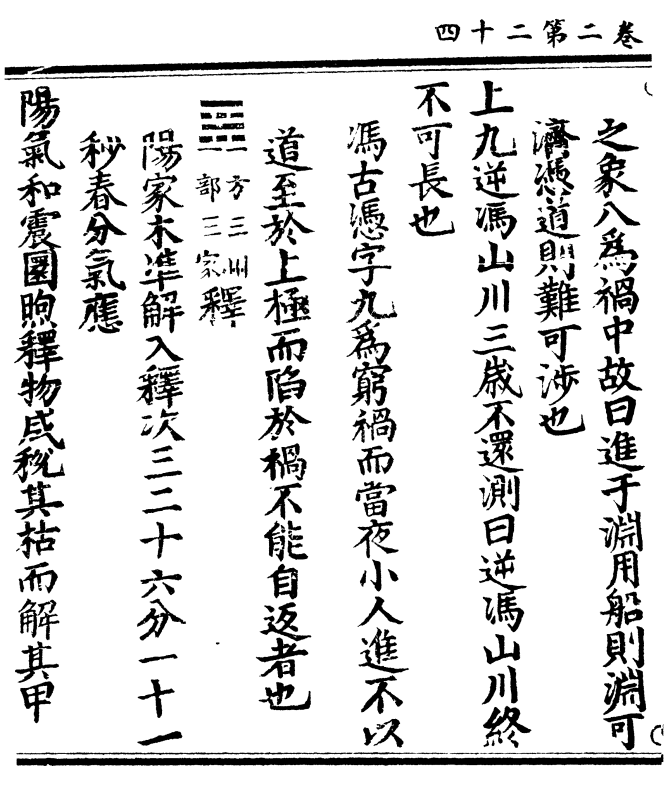 卷二第二十四
之象八爲禍中故曰進于淵用船則淵可
濟憑道則難可涉也
上九逆馮山川三歲不還測曰逆馮山川終
不可長也
馮古憑字九爲窮禍而當夜小人進不以
道至於上極而陷於禍不能自返者也
䷲一方三州
一部三家釋
陽家木準解入釋次三二十六分一十一
秒春分氣應
陽氣和震圜煦釋物咸稅其枯而解其甲